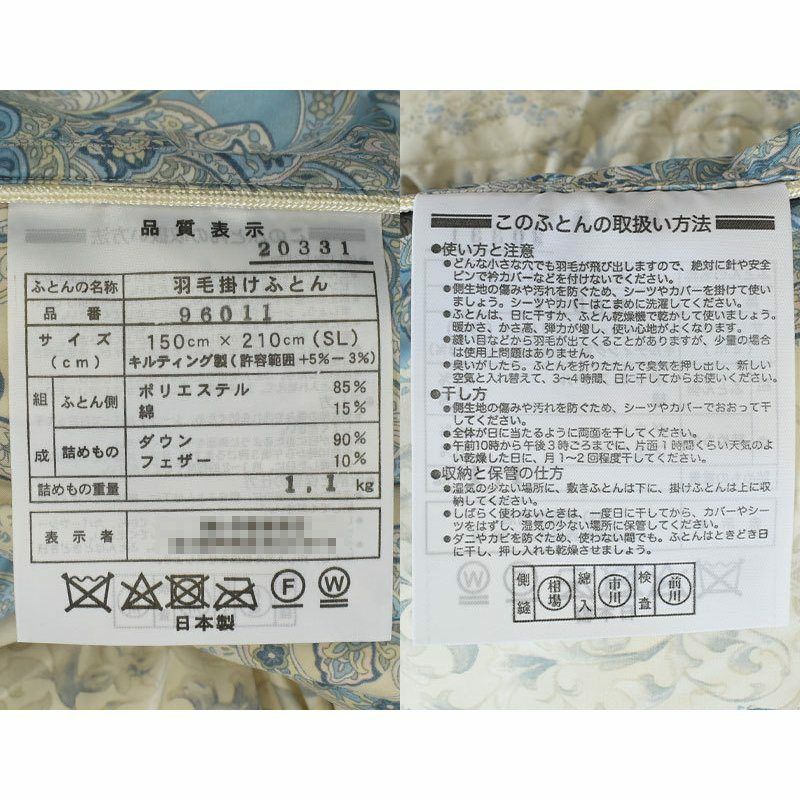 品質表示
20331
ふとんの名称 羽毛掛けふとん
品番 96011
サイズ(cm) 150cm × 210cm (SL)
キルティング製(許容範囲+5%-3%)
組成 ふとん側 ポリエステル 85%
綿 15%
詰めもの ダウン 90%
フェザー 10%
詰めもの重量 1.1kg
表示者
F W
日本製
このふとんの取扱い方法
●使い方と注意
●どんな小さな穴でも羽毛が飛び出しますので、絶対に針や安全
ピンで衿カバーなどを付けないでください。
●側生地の傷みや汚れを防ぐため、シーツやカバーを掛けて使い
ましょう。シーツやカバーはこまめに洗濯してください。
●ふとんは、日に干すか、ふとん乾燥機で乾かして使いましょう。
暖かさ、かさ高、弾力が増し、使い心地がよくなります。
●縫い目などから羽毛が出てくることがありますが、少量の場合
は使用上問題はありません。
●臭いがしたら。ふとんを折りたたんで臭気を押し出し、新しい
空気と入れ替えて、3~4時間、日に干してからお使いください。
●干し方
●側生地の傷みや汚れを防ぐため、シーツやカバーでおおって干
してください。
●全体が日に当たるように両面を干してください。
●午前10時から午後3時ごろまでに、片面1時間くらい天気のよ
い乾燥した日に、月1~2回程度干してください。
●収納と保管の仕方
●湿気の少ない場所に、敷きふとんは下に、掛けふとんは上に収
納してください。
●しばらく使わないときは、一度日に干してから、カバーやシー
ツをはずし、湿気の少ない場所に保管してください。
●ダニやカビを防ぐため、使わない間でも。ふとんはときどき日
に干し、押し入れも乾燥させましょう。
側縫 相場 綿入 市川 検査 前川